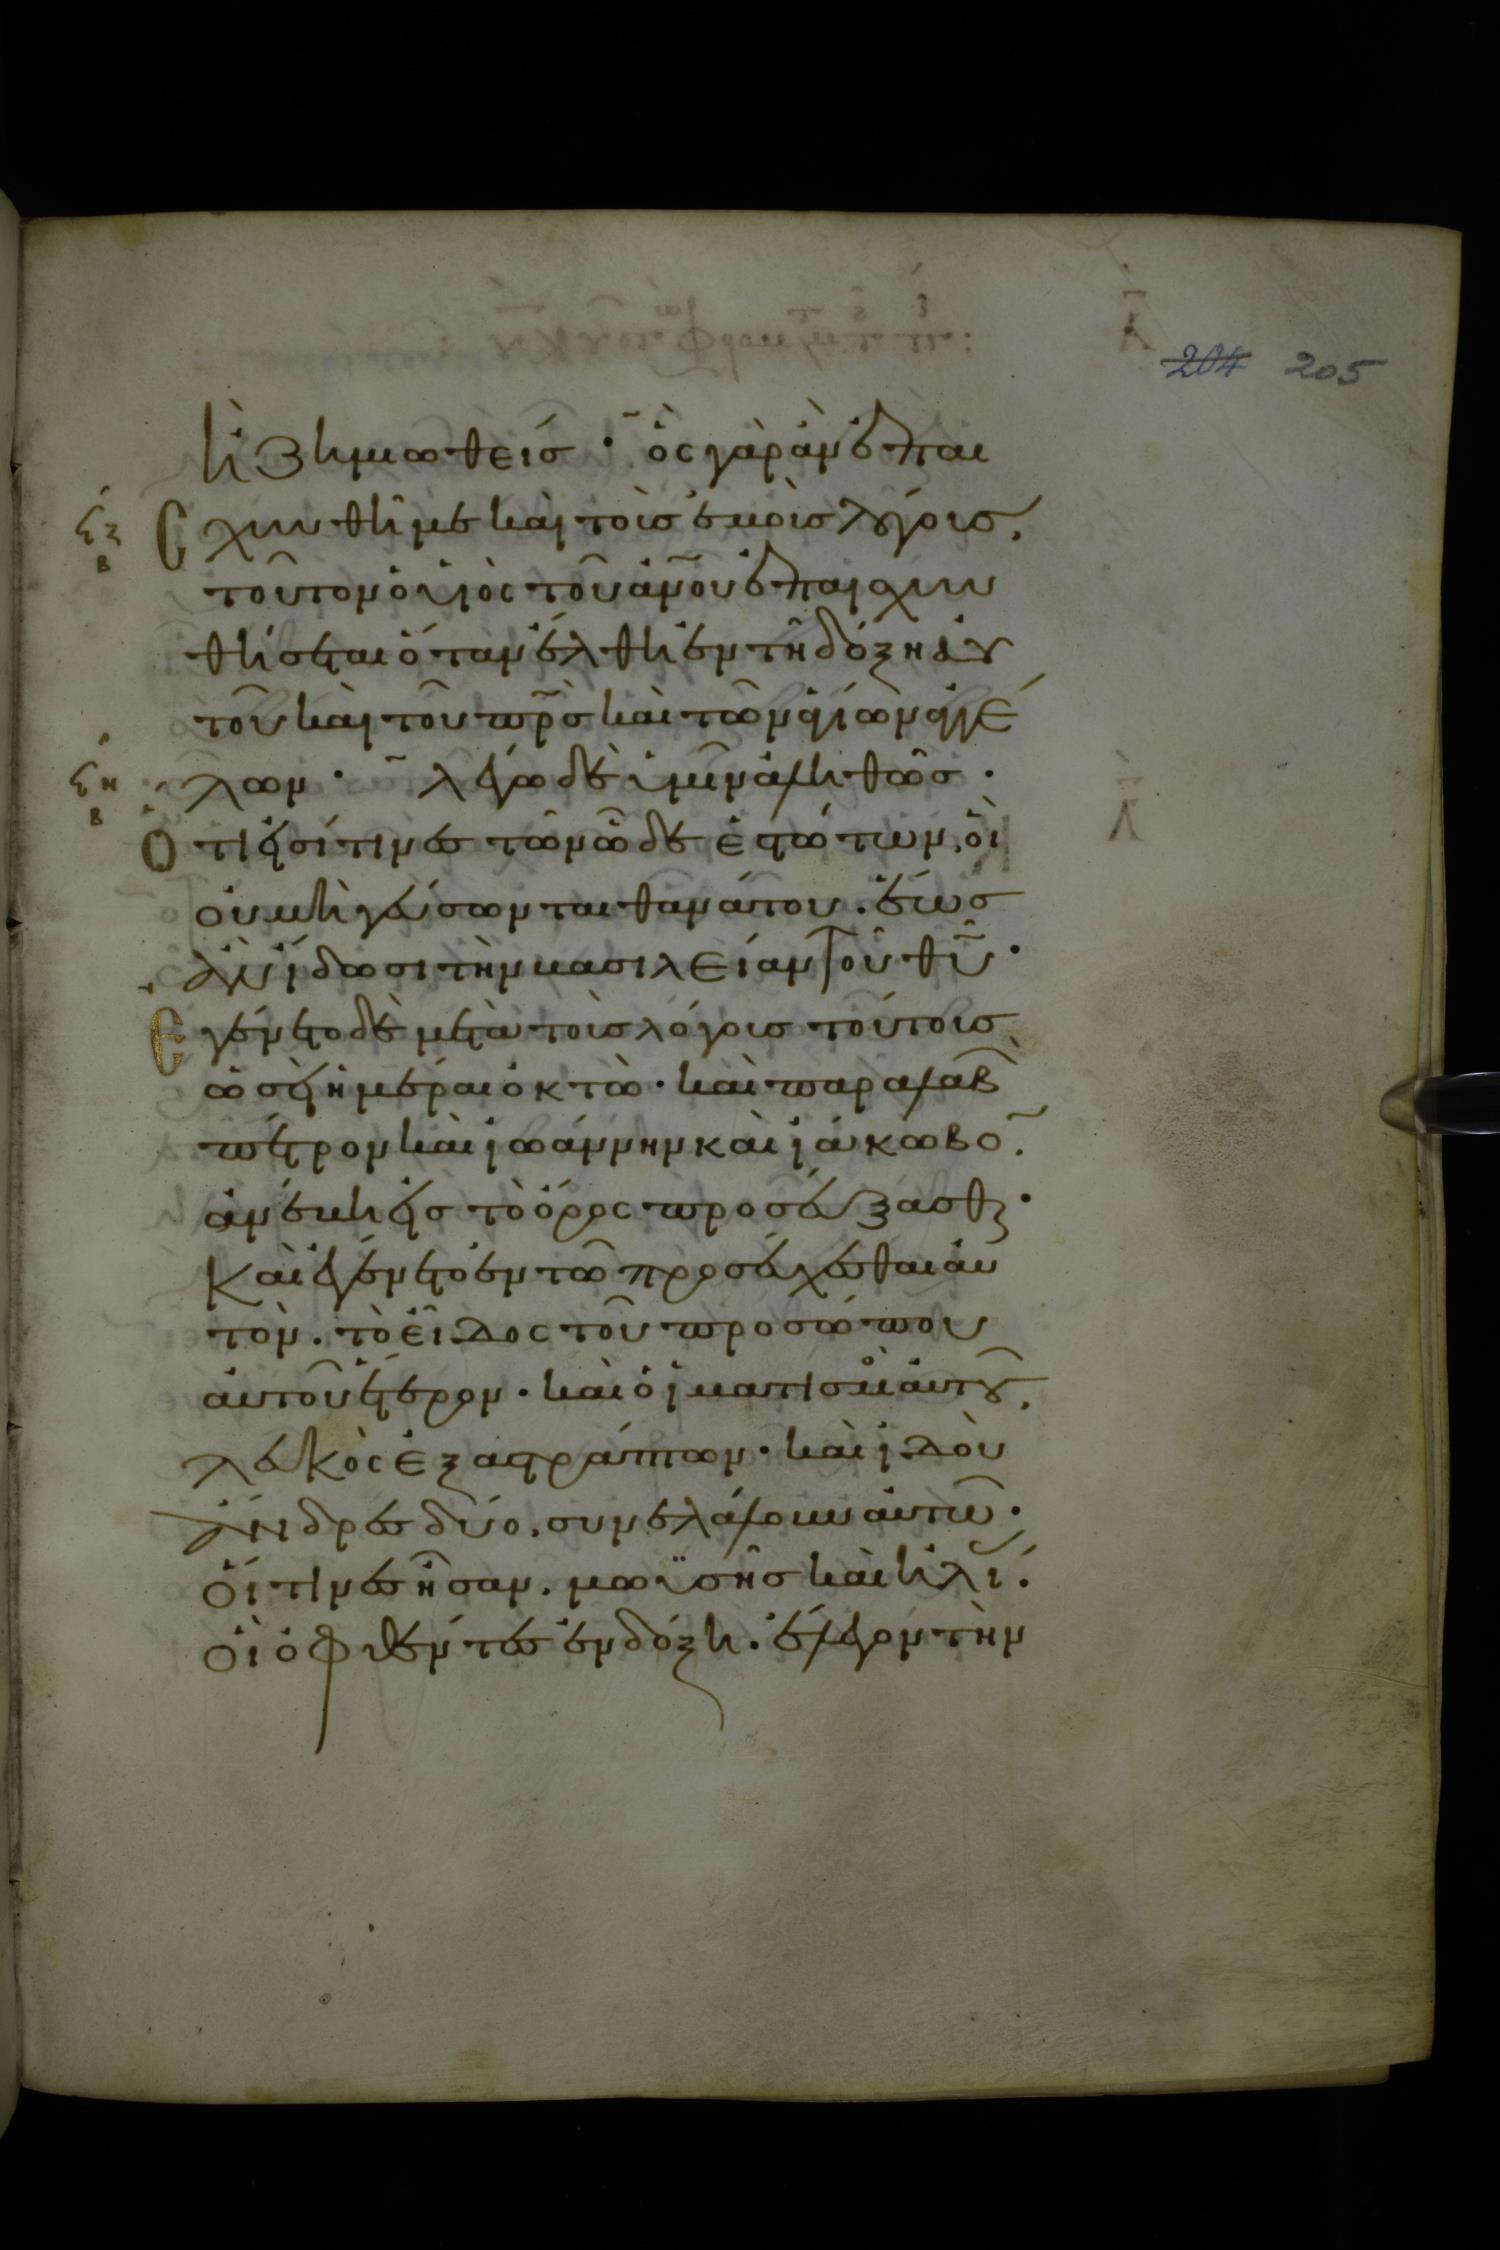 204 205
ἢ ζημιωθείς · ὃς γὰρ ἂν ἐπαι
ϟζ β Ε χυνθῆ με καὶ τοὺς ἐμοὺς λόγους,
τοῦτον ὁ υἱὸς τοῦ ἀνου ἐπαισχυν
θήσεται ὅταν ἔλθη ἐν τῆ δόξη αὐ
τοῦ καὶ τοῦ πρς καὶ τῶν ἁγίων ἀγγέ
ϟη β λων · λέγω δὲ ὑμῖν ἀληθῶς ·
Ὅτι εἰσί τινες τῶν ὧδε ἑστώτων, οἳ
οὐ μὴ γεύσωνται θανάτου. ἕως
ἂν ἴδωσι τὴν βασιλείαν τοῦ θυ ·
Εγένετο δὲ μετὰ τοὺς λόγους τούτους
ὡσεὶ ἡμέραι ὀκτὼ · καὶ παραλαβ
πέτρον καὶ ἰωάννην καὶ ἰάκωβο.
ἀνέβη εἰς τὸ ὄρος προσεύξασθαι ·
Καὶ ἐγένετο ἐν τῶ προσεύχεσθαι αὐ
τὸν. τὸ εἶδος τοῦ προσώπου
αὐτοῦ ἕτερον · καὶ ὁ ἱματισμὸς αὐτοῦ,
λευκὸς ἐξαστράπτων · καὶ ἰδοὺ
ἄνδρες δύο, συνελάλουν αὐτῶ ·
Οἵτινες ἦσαν. μωϋσῆς καὶ ἡλί.
οἳ ὀφθέντες ἐν δόξη. ἔλεγον τὴν